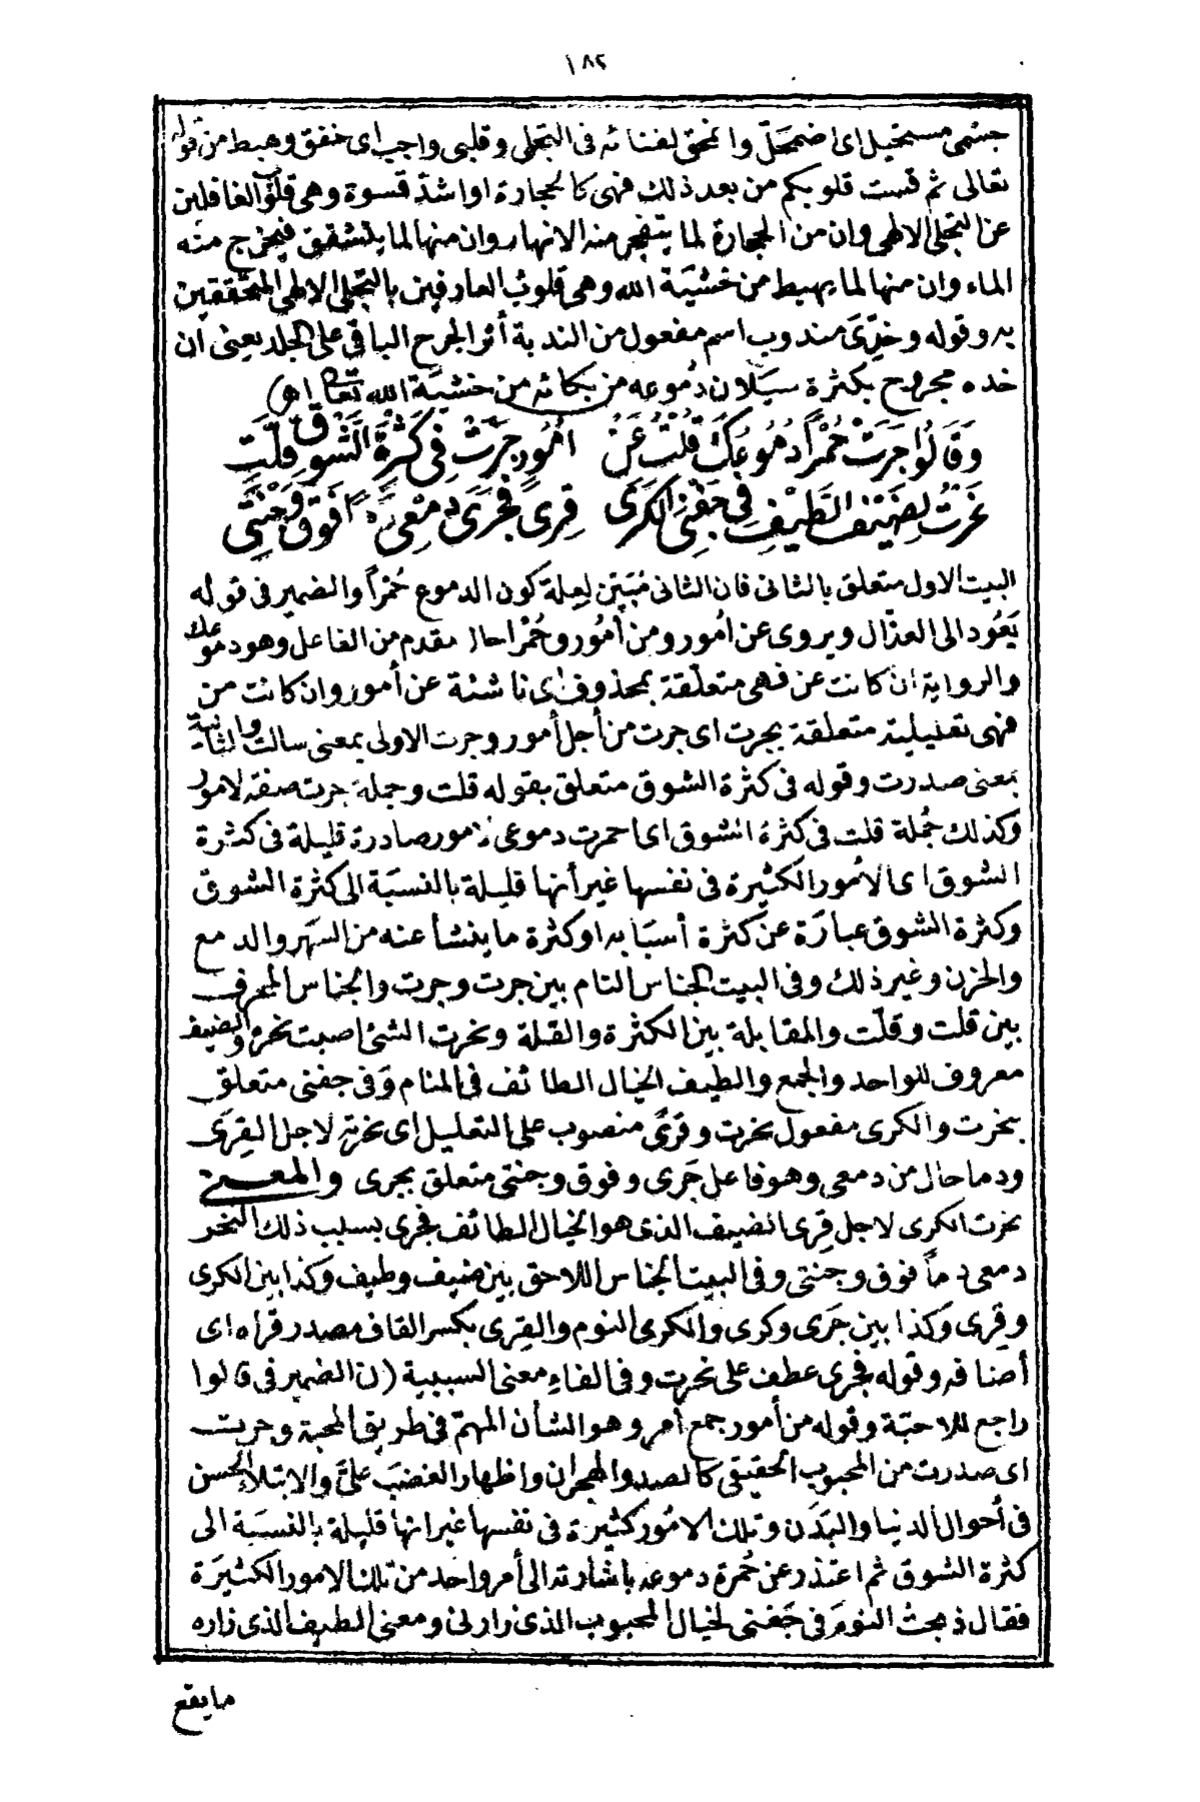 ١٨٢
جسمى مستحيل اى اضمحلّ وانمحق لفنائه فى التجلى وقلبى واجب اى خفق وهبط من قوله
تعالى ثم قست قلوبكم من بعد ذلك فهى كالحجارة او اشدّ قسوة وهى قلوب الغافلين
عن التجلى الالهى وان من الحجارة لما يتفجر منه الانهار وان منها لما يتشقق فيخرج منه
الماء وان منها لما يهبط من خشيَة الله وهى قلوبُ العارفين بالتجلى الالهى المتحققين
به وقوله وخدِّىَ مندوب اسم مفعول من الندبة أثر الجرح الباقى على الجلد يعنى ان
خده مجروح بكثرة سيَلان دُموعه من بكائه من خشيَة الله تعالى اهـ)
وَقَالُوا جَرَتْ حُمْراً دُمُوعُكَ قُلْتُ عَنْ أُمُورٍ جَرَتْ فِى كَثْرَةِ الشَّوْقِ قَلَّتِ
نَحَرْتُ لِضَيْفِ الطَّيْفِ فِى جَفْنِىَ الكَرَى قِرىً فَجَرَى دَمْعِى دَماً فَوْقَ وَجْنَتِى
البيت الاول متعلق بالثانى فان الثانى مُبَيّن لِعِلة كون الدموع حُمْراً والضمير فى قوله
يَعُود الى العذّال ويروى عن اُمور ومن أمُور وحُمْرا حال مقدم من الفاعل وهو دموعك
والرواية ان كانت عن فهى متعلّقة بمحذوف اى ناشئة عن أمور وان كانت من
فهى تعليلية متعلقة بجرت اى جرت من أجل أمور وجرت الاولى بمعنى سالت والثانية
بمعنى صدرت وقوله فى كثرة الشوق متعلق بقوله قلت وجملة جرت صفة لامور
وكذلك جُملة قلت فى كثرة الشوق اى احمرت دموعى لامور صادرة قليلة فى كثرة
الشوق اى الامُور الكثيرة فى نفسها غير أنها قليلة بالنسبَة الى كثرة الشوق
وكثرة الشوق عبارَة عن كثرة أسبَابه او كثرة ما ينشأ عنه من السهَر والدمع
والحزن وغير ذلك وفى البيت الجناس التام بين جرت وجرت والجناس المحرف
بين قلت وقلّت والمقابلة بين الكثرة والقلة ونحرت الشئ اصبت نحره والضيف
معروف للواحد والجمع والطيف الخيال الطائف فى المنام وَفى جفنى متعلق
بنحرت والكرى مفعول نحرت وقرىً منصوب على التعليل اى نحرته لاجل القِرَى
ودما حال من دمعى وهو فاعل جَرى وفوق وجنتى متعلق بجرى والمعنى
نحرت الكرى لاجل قِرى الضيف الذى هو الخيال الطائف فجرى بسبب ذلك النحر
دمعى دماً فوق وجنتى وفى البيت الجناس اللاحق بين ضيف وطيف وكذا بين الكرى
وقِرى وَكذا بين جَرى وكرى والكرى النوم والقِرى بكسر القاف مصدر قراه اى
أضافه وقوله فجرى عطف على نحرت وفى الفاءِ معنى السببية (ن الضمير فى قالوا
راجع للاحبّة وقوله من أمور جمع أمر وهو الشأن المهمّ فى طريق المحبة وجرت
اى صدرت من المحبوب الحقيقى كالصد والهجران واظهار الغضَب علىَّ والابتلاءِ الحسن
فى أحوال الدنيا والبَدَن وتلك الامُور كثيرة فى نفسها غير انها قليلة بالنسبَة الى
كثرة الشوق ثم اعتذر عن حُمرة دموعه باشارته الى أمر واحد من تلك الامور الكثيرَة
فقال ذبحتُ النومَ فى جَفنى لخيال المحبوب الذى زارنى ومعنى الطيف الذى زاره
ما يقع